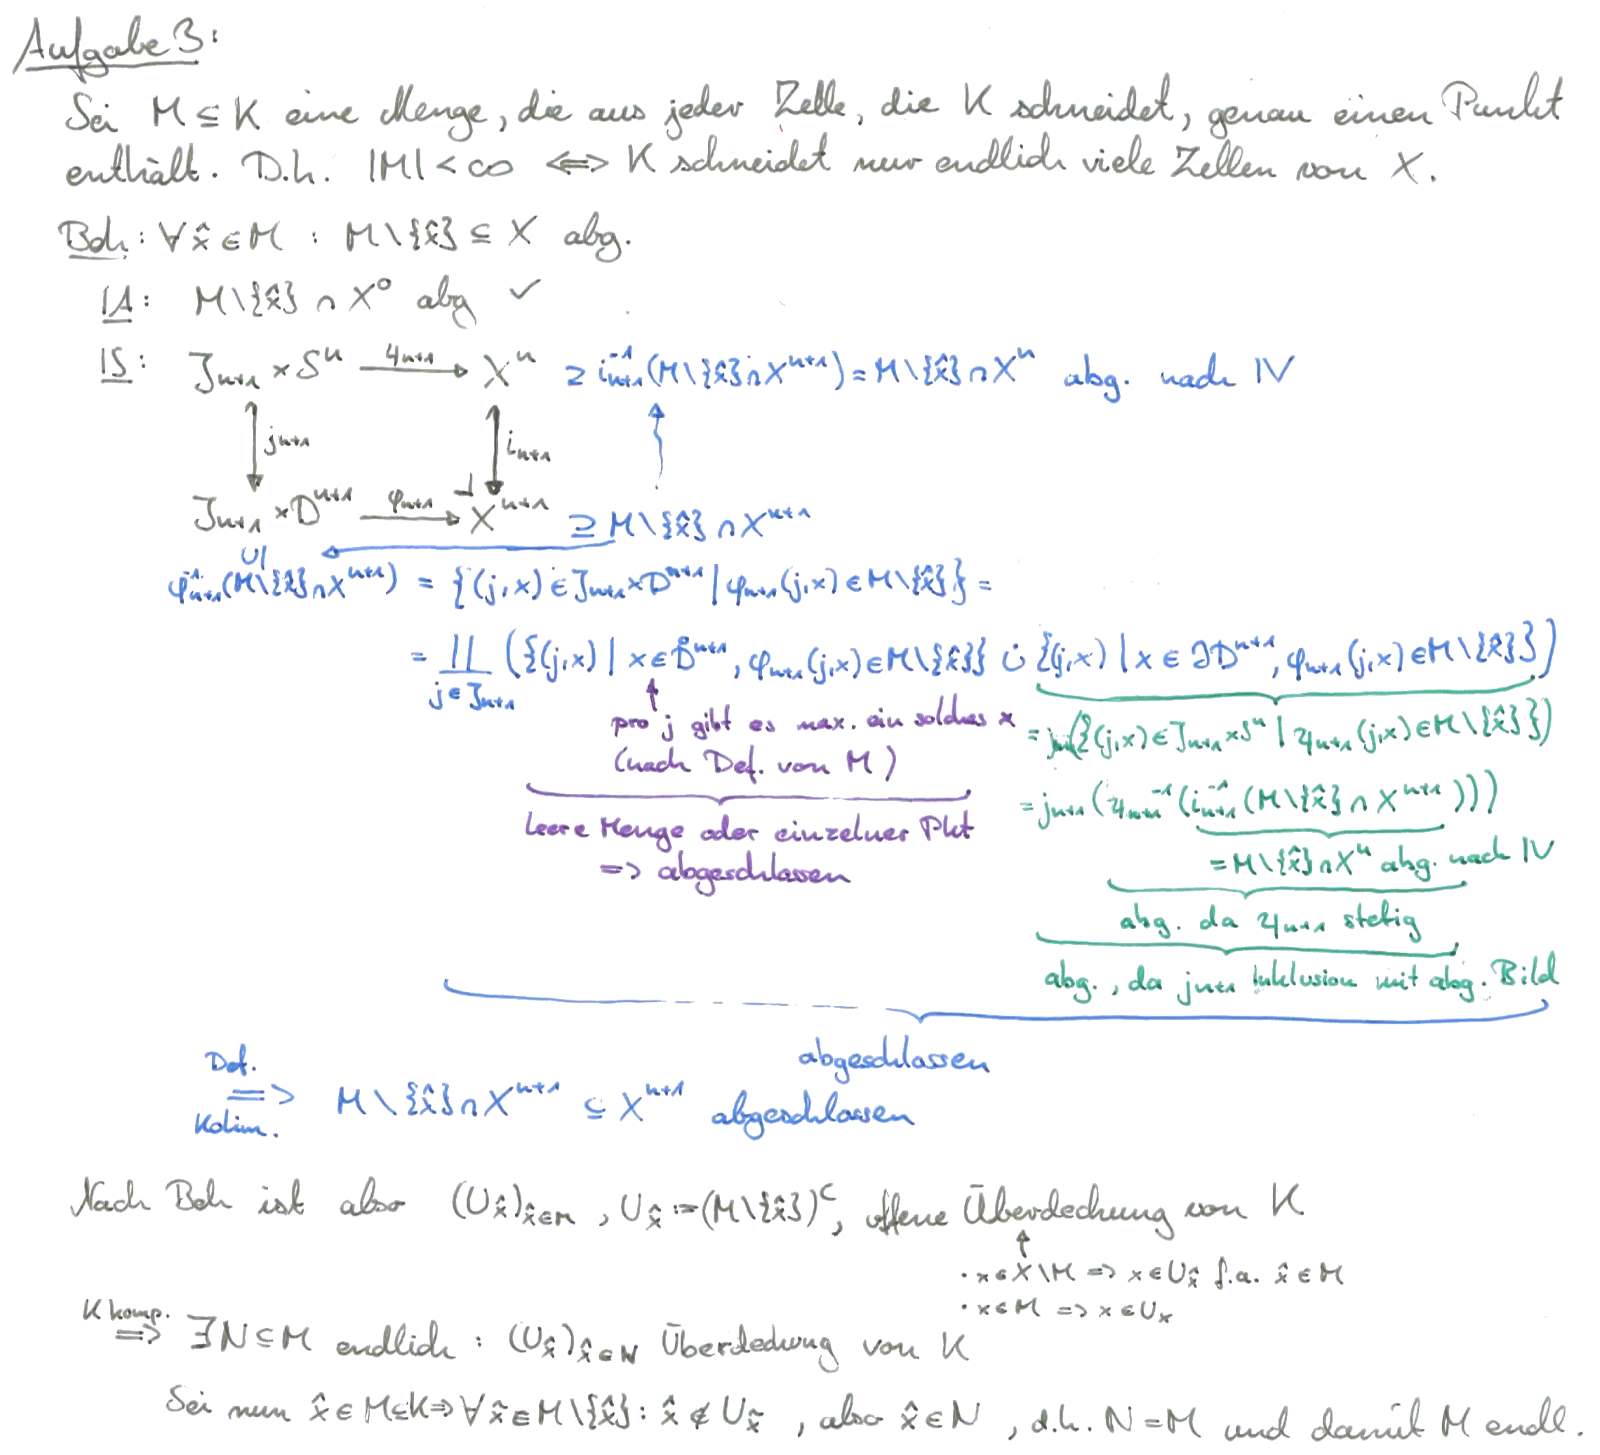 Aufgabe 3:
Sei M ⊆ K eine Menge, die aus jeder Zelle, die K schneidet, genau einen Punkt
enthält. D.h. |M| < ∞ ⟺ K schneidet nur endlich viele Zellen von X.
Beh: ∀ x̂ ∈ M : M\{x̂} ⊆ X abg.
IA: M\{x̂} ∩ X⁰ abg ✓
IS: J_{n+1} × Sⁿ —ψ_{n+1}→ Xⁿ ⊇ i_{n+1}^{-1}(M\{x̂} ∩ X^{n+1}) = M\{x̂} ∩ Xⁿ abg. nach IV
j_{n+1} i_{n+1}
J_{n+1} × D^{n+1} —φ_{n+1}→ X^{n+1} ⊇ M\{x̂} ∩ X^{n+1}
∪|
φ_{n+1}^{-1}(M\{x̂} ∩ X^{n+1}) = {(j,x) ∈ J_{n+1} × D^{n+1} | φ_{n+1}(j,x) ∈ M\{x̂}} =
= ∐_{j ∈ J_{n+1}} ({(j,x) | x ∈ D̊^{n+1}, φ_{n+1}(j,x) ∈ M\{x̂}} ∪̇ {(j,x) | x ∈ ∂D^{n+1}, φ_{n+1}(j,x) ∈ M\{x̂}})
pro j gibt es max. ein solches x
(nach Def. von M)
leere Menge oder einzelner Pkt
=> abgeschlossen
= j_{n+1}({(j,x) ∈ J_{n+1} × Sⁿ | ψ_{n+1}(j,x) ∈ M\{x̂}})
= j_{n+1}(ψ_{n+1}^{-1}(i_{n+1}^{-1}(M\{x̂} ∩ X^{n+1})))
= M\{x̂} ∩ Xⁿ abg. nach IV
abg. da ψ_{n+1} stetig
abg., da j_{n+1} Inklusion mit abg. Bild
abgeschlossen
Def.
=> M\{x̂} ∩ X^{n+1} ⊆ X^{n+1} abgeschlossen
Kolim.
Nach Beh ist also (U_x̂)_{x̂∈M}, U_x̂ := (M\{x̂})^C, offene Überdeckung von K
· x ∈ X\M => x ∈ U_x̂ f.a. x̂ ∈ M
· x ∈ M => x ∈ U_x
K komp.
=> ∃ N ⊆ M endlich : (U_x̂)_{x̂∈N} Überdeckung von K
Sei nun x̂ ∈ M ⊆ K => ∀ x̃ ∈ M\{x̂} : x̂ ∉ U_x̃, also x̂ ∈ N, d.h. N = M und damit M endl.